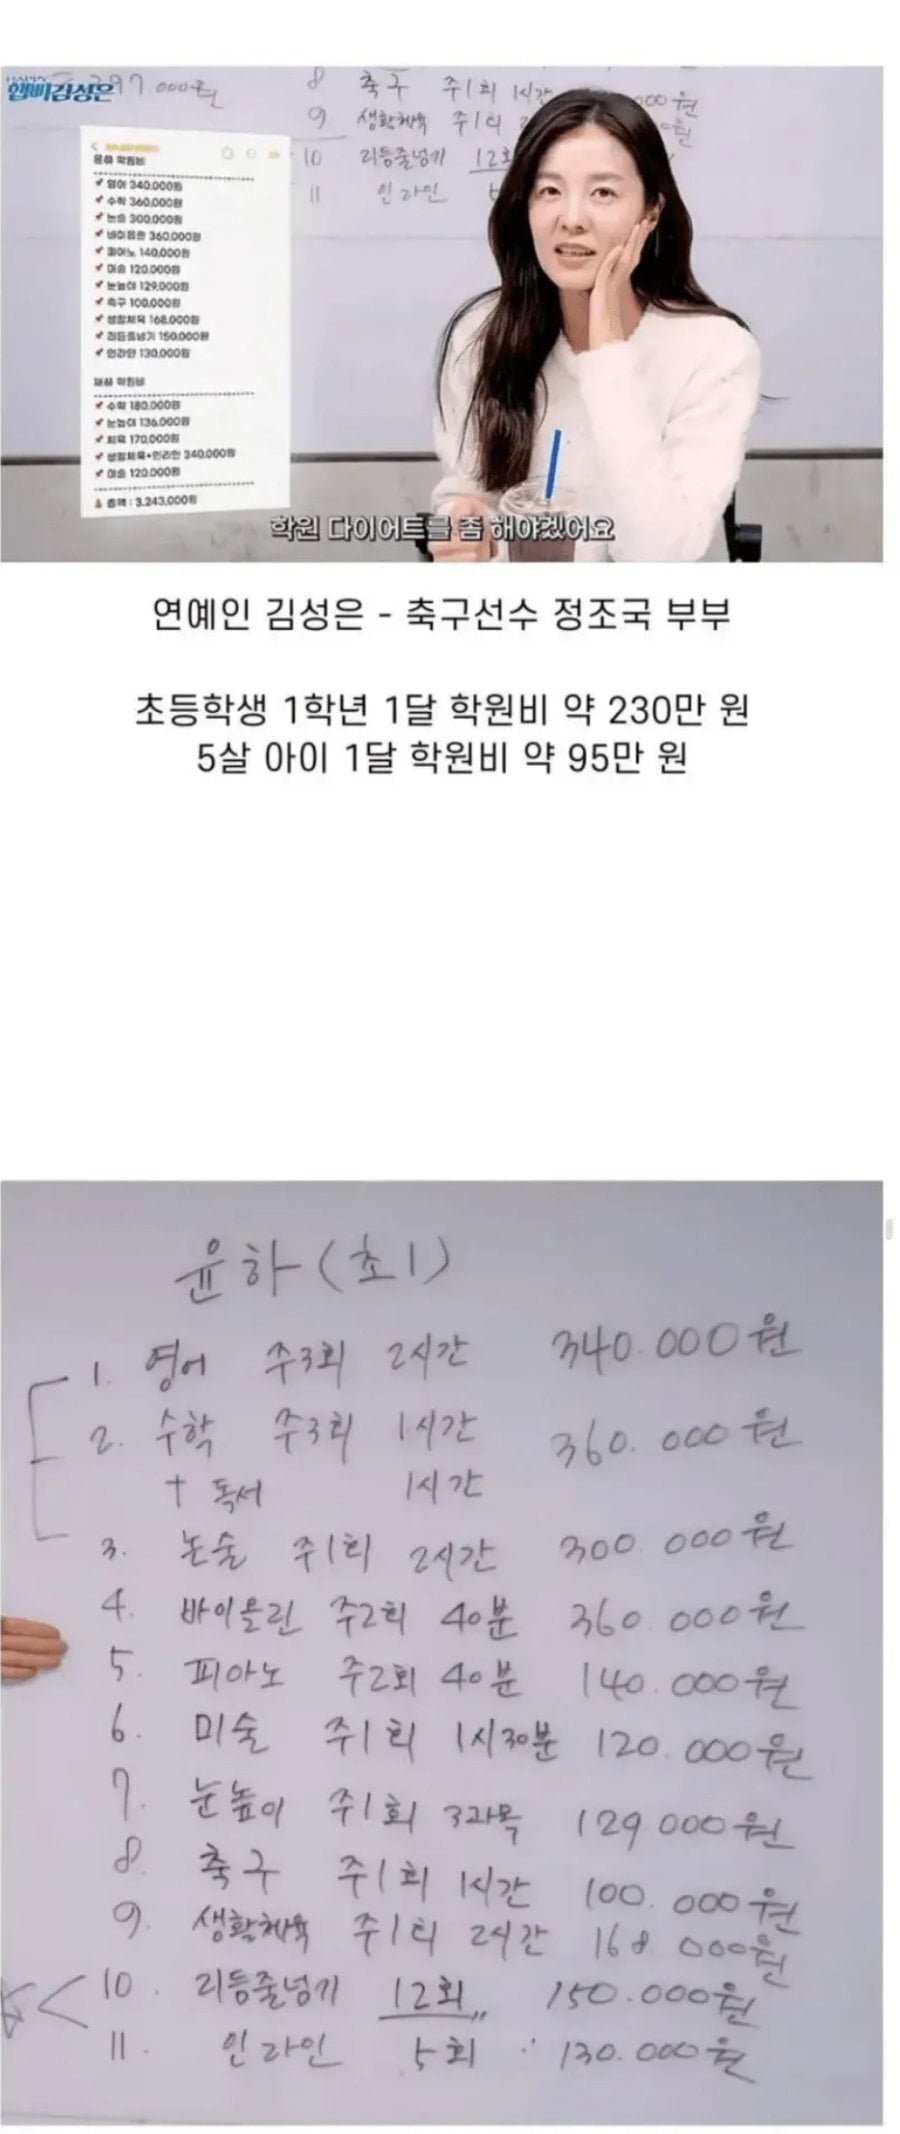 햅삐김성은
397.000원
8 축구 주1회 1시간 000원
9 생활체육 주1회
10 리듬줄넘기 12회
11 인라인
윤하 학원비
영어 340,000원
수학 360,000원
논술 300,000원
바이올린 360,000원
피아노 140,000원
미술 120,000원
눈높이 129,000원
축구 100,000원
생활체육 168,000원
리듬줄넘기 150,000원
인라인 130,000원
재하 학원비
수학 180,000원
눈높이 136,000원
체육 170,000원
생활체육+인라인 340,000원
미술 120,000원
총액 : 3,243,000원
학원 다이어트를 좀 해야겠어요
연예인 김성은 - 축구선수 정조국 부부
초등학생 1학년 1달 학원비 약 230만 원
5살 아이 1달 학원비 약 95만 원
윤하 (초1)
1. 영어 주3회 2시간 340.000원
2. 수학 주3회 1시간 360.000원
+ 독서 1시간
3. 논술 주1회 2시간 300.000원
4. 바이올린 주2회 40분 360.000원
5. 피아노 주2회 40분 140.000원
6. 미술 주1회 1시30분 120.000원
7. 눈높이 주1회 3과목 129.000원
8. 축구 주1회 1시간 100.000원
9. 생활체육 주1회 2시간 168.000원
10. 리듬줄넘기 12회 150.000원
11. 인라인 5회 130.000원